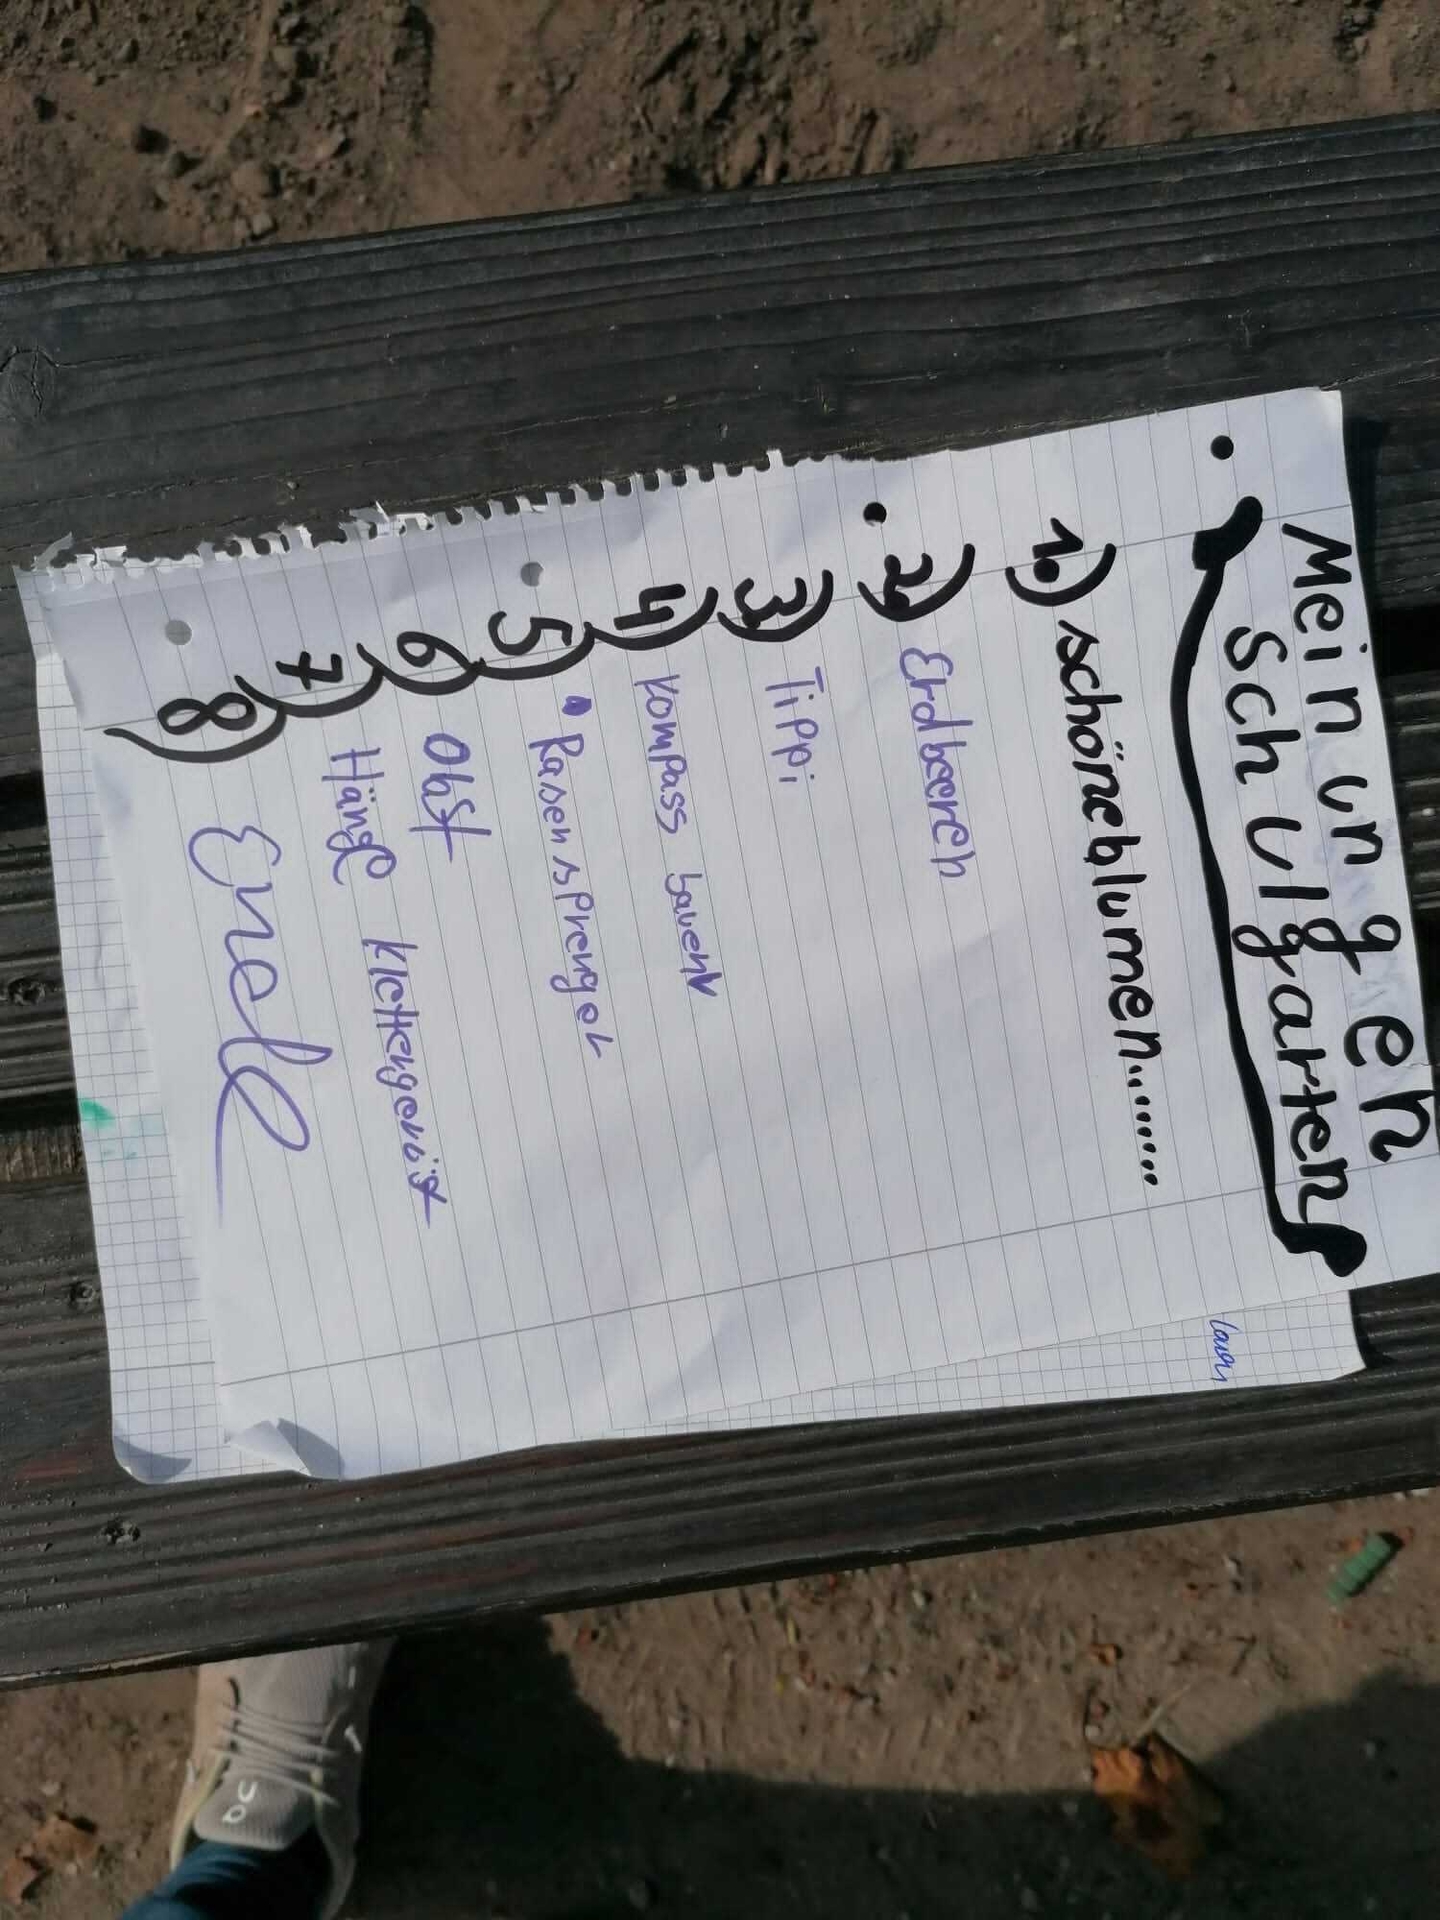 Meinungen
Schulgarten
1.) schöneblumen........
2.) Erdbeereh
3.) Tippi
4) Kompass bauen
5) Rasensprenger
6) Obst
7) Hänge Klettergerüst
8) Ende